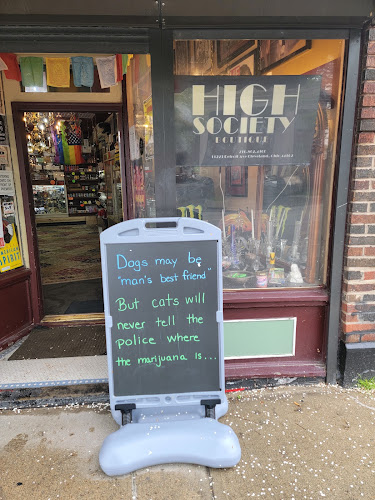 HIGH
SOCIETY
BOUTIQUE
Dogs may be
"man's best friend"
But cats will
never tell the
police where
the marijuana is...
SPIRIT